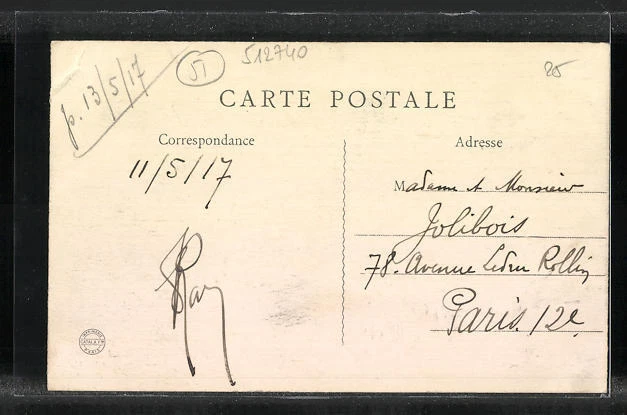 p. 13/5/17
51
512740
25
CARTE POSTALE
Correspondance
Adresse
11/5/17
Madame et Monsieur
Jolibois
78. Avenue Ledru Rollin
Paris. 12e